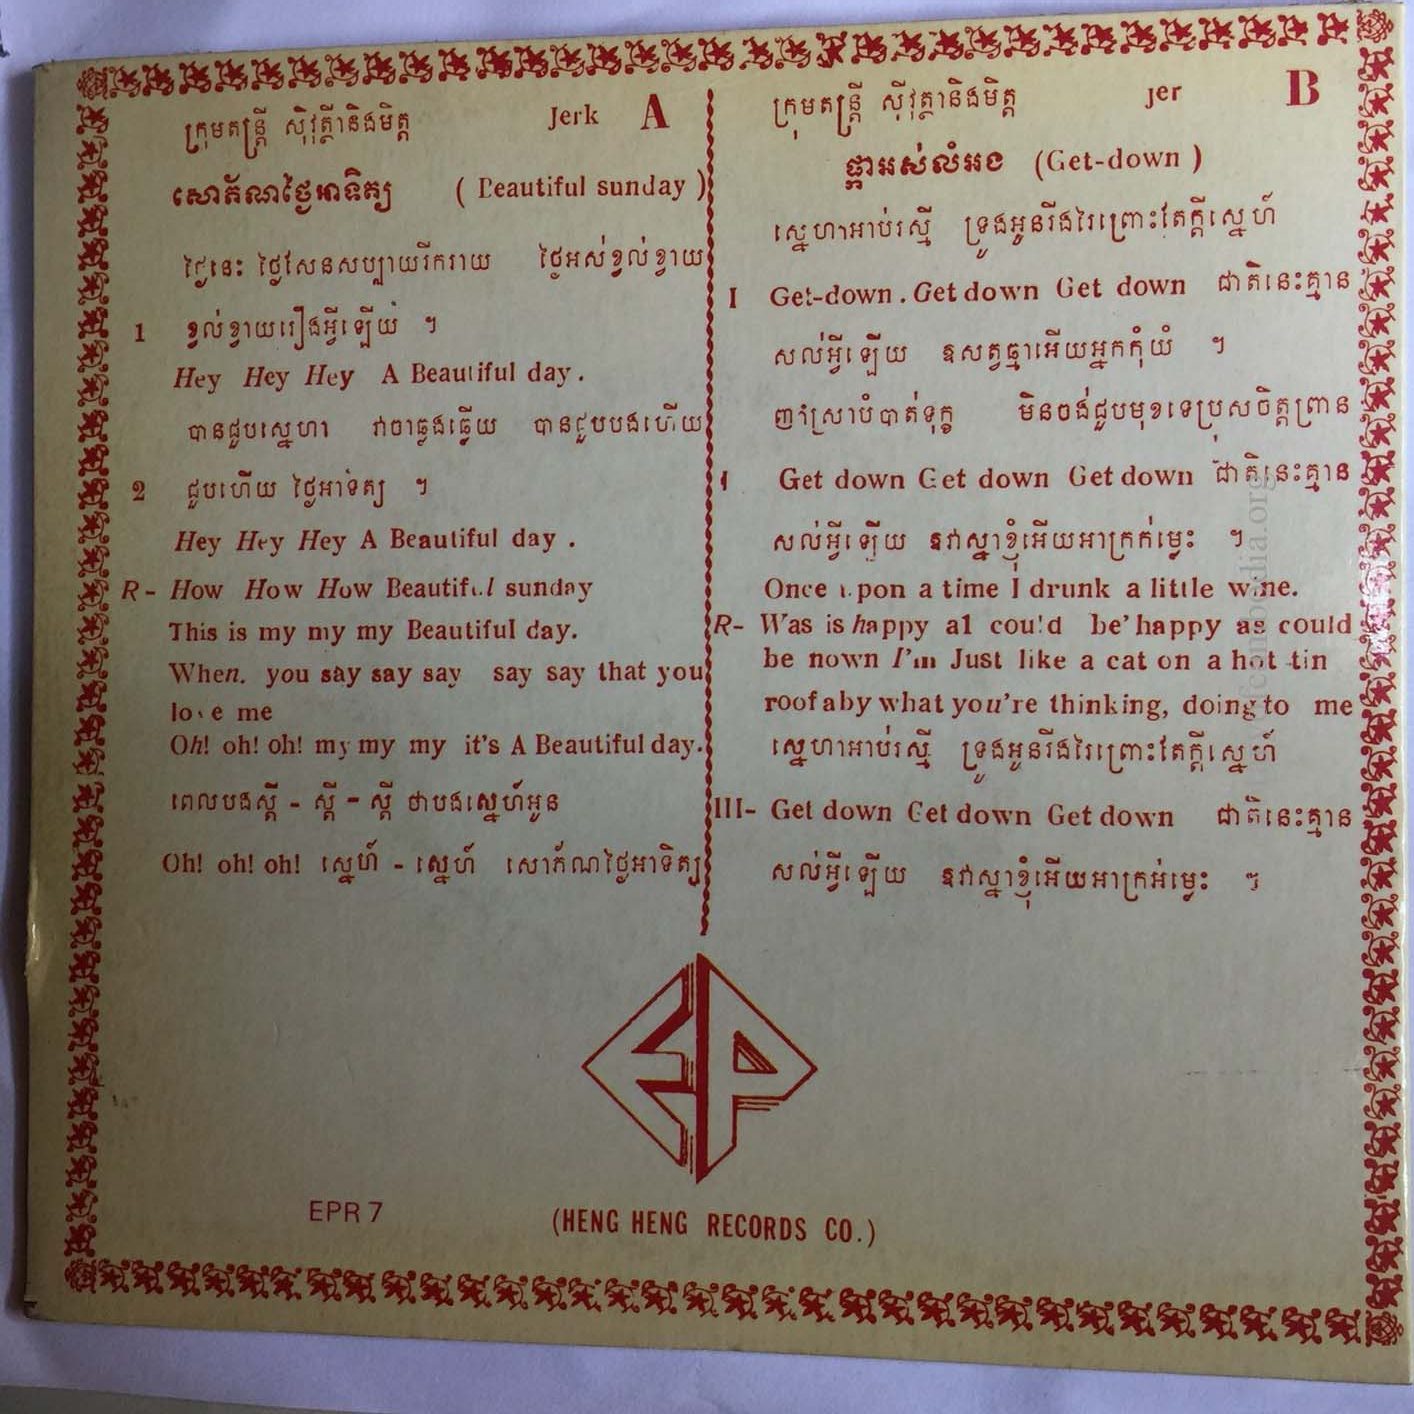 ក្រុមតន្ត្រី ស៊ីវុត្ថានិងមិត្ត Jerk A
សោភ័ណថ្ងៃអាទិត្យ ( Beautiful sunday )
ថ្ងៃនេះ ថ្ងៃសែនសប្បាយរីករាយ ថ្ងៃអស់ខ្វល់ខ្វាយ
1 ខ្វល់ខ្វាយរឿងអ្វីឡើយ ។
Hey Hey Hey A Beautiful day .
បានជួបស្នេហា វាចាឆ្លងឆ្លើយ បានជួបបងហើយ
2 ជួបហើយ ថ្ងៃអាទិត្យ ។
Hey Hey Hey A Beautiful day .
R - How How How Beautiful sunday
This is my my my Beautiful day.
When. you say say say say say that you
love me
Oh! oh! oh! my my my it's A Beautiful day.
ពេលបងស្តី - ស្តី - ស្តី ថាបងស្នេហ៍អូន
Oh! oh! oh! ស្នេហ៍ - ស្នេហ៍ សោភ័ណថ្ងៃអាទិត្យ
ក្រុមតន្ត្រី ស៊ីវុត្ថានិងមិត្ត Jer B
ផ្កាអស់លំអង (Get-down )
ស្នេហាអាប់រស្មី ទ្រូងអូនរីងរៃព្រោះតែក្តីស្នេហ៍
I Get-down . Get down Get down ជាតិនេះគ្មាន
សល់អ្វីឡើយ ឱសត្វធ្មាអើយអ្នកកុំយំ ។
ញ៉ាំស្រាបំបាត់ទុក្ខ មិនចង់ជួបមុខទេប្រុសចិត្តព្រាន
I Get down Get down Get down ជាតិនេះគ្មាន
សល់អ្វីឡើយ ឱវាស្នាខ្ញុំអើយអាក្រក់ម្លេះ ។
Once upon a time I drunk a little wine.
R- Was is happy a1 cou!d be' happy as could
be nown I'm Just like a cat on a hot tin
roof aby what you're thinking, doing to me
ស្នេហាអាប់រស្មី ទ្រូងអូនរីងរៃព្រោះតែក្តីស្នេហ៍
III- Get down Get down Get down ជាតិនេះគ្មាន
សល់អ្វីឡើយ ឱវាស្នាខ្ញុំអើយអាក្រអ់ម្លេះ ។
EP
EPR 7
(HENG HENG RECORDS CO.)